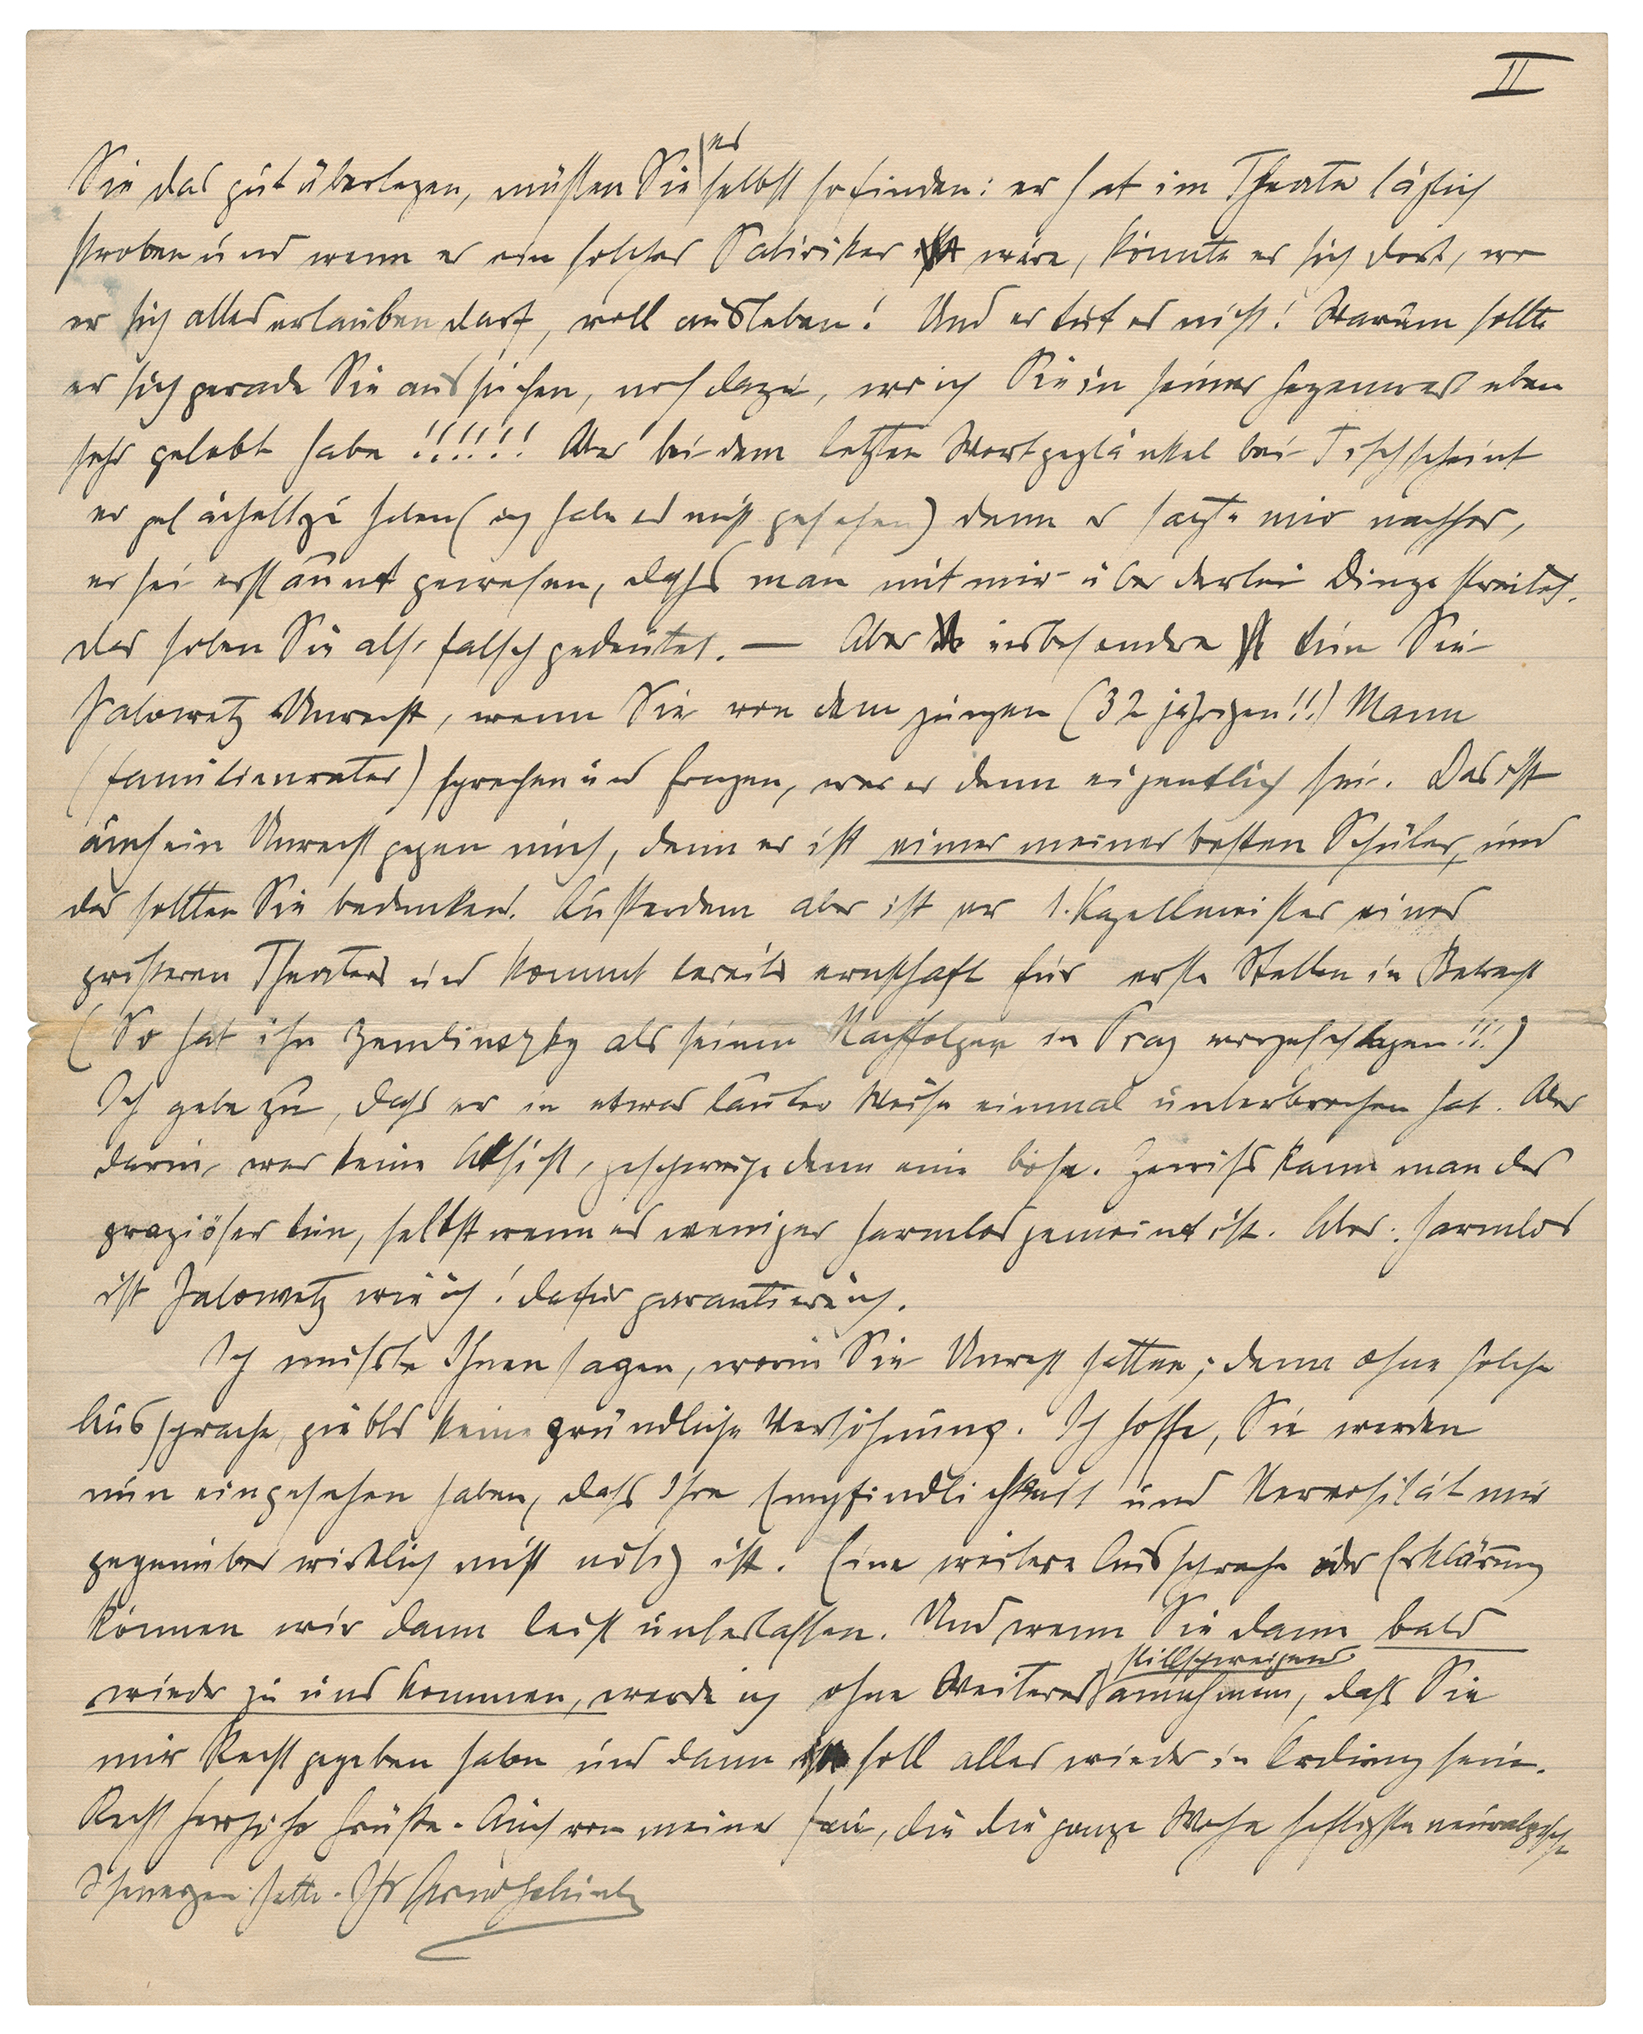 II
Sie das gut überlegen, müssen Sie es selbst so finden: er hat im Theater täglich
Proben und wenn er ein solcher Satiriker wäre, könnte er sich dort, wo
er sich alles erlauben darf, voll ausleben! Und er tut es nicht! Warum sollte
er sich gerade Sie aussuchen, noch dazu, wo ich Sie in seiner Gegenwart eben
sehr gelobt habe !!!!!! Aber bei dem letzten Wortgeplänkel bei Tisch scheint
er gelächelt zu haben (ich habe es nicht gesehen) denn er sagte mir nachher,
er sei erstaunt gewesen, dass man mit mir über derlei Dinge streitet.
das haben Sie also falsch gedeutet. — Aber insbesondere tun Sie
Jalowetz Unrecht, wenn Sie von dem jungen (32 jährigen!!) Mann
(Familienvater) sprechen und fragen, wer er denn eigentlich sei. Das ist
auch ein Unrecht gegen mich, denn er ist einer meiner besten Schüler, und
das sollten Sie bedenken. Ausserdem aber ist er 1. Kapellmeister eines
grösseren Theaters und kommt bereits ernsthaft für erste Stellen in Betracht
(So hat ihn Zemlinszky als seinen Nachfolger in Prag vorgeschlagen!!!)
Ich gebe zu, dass er in etwas lauter Weise einmal unterbrochen hat. Aber
darin war keine Absicht, geschweige denn eine böse. Gewiss kann man das
graziöser tun, selbst wenn es weniger harmlos gemeint ist. Aber: harmlos
ist Jalowetz wie ich! dafür garantiere ich.
Ich musste Ihnen sagen, worin Sie Unrecht hatten; denn ohne solche
Aussprache giebts keine gründliche Versöhnung. Ich hoffe, Sie werden
nun eingesehen haben, dass Ihre Empfindlichkeit und Nervosität mir
gegenüber wirklich nicht nötig ist. Eine weitere Aussprache oder Erklärung
können wir dann leicht unterlassen. Und wenn Sie dann bald
wieder zu uns kommen, werde ich ohne Weiteres stillschweigend annehmen, dass Sie
mir Recht gegeben haben und dann soll alles wieder in Ordnung sein.
Recht herzliche Grüsse. Auch von meiner Frau, die die ganze Woche heftigste neuralgische
Schmerzen hatte. Ihr Arnold Schönberg